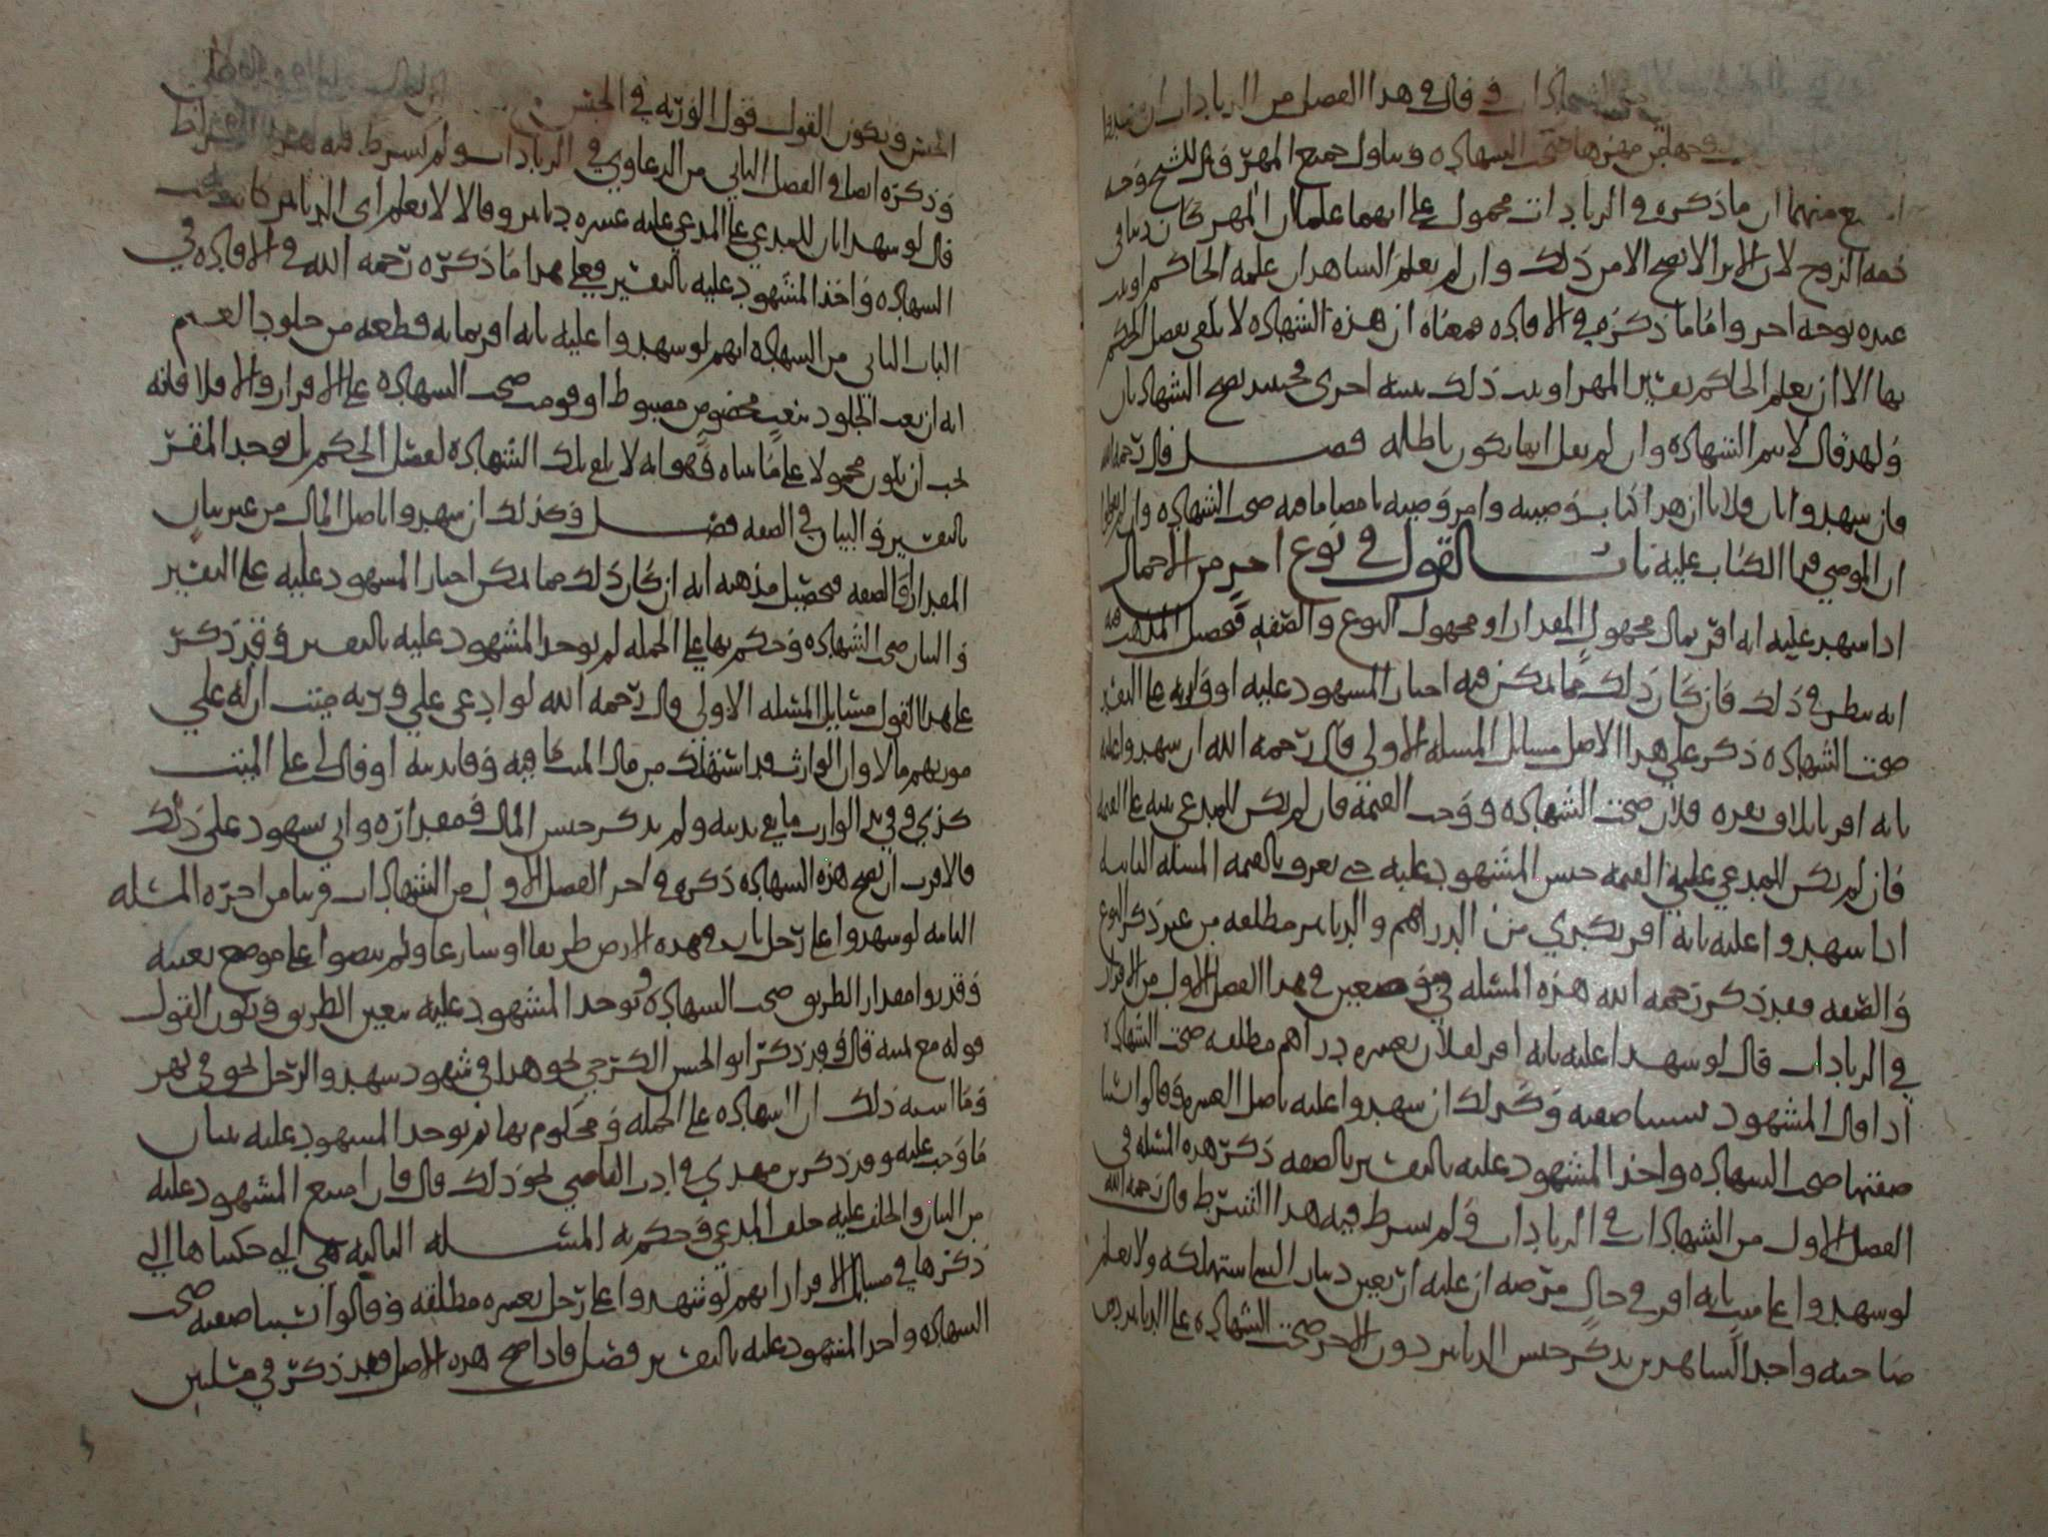 في الشهادات وقال في هذا الفصل من الزيادات ان
صحت الشهادة وتناول جميع المهر قال الشيخ وجه
منهما ان ما ذكره في الزيادات محمول على انهما علما ان المهر كان دينا في
ذمة الزوج لان الابرا لا يصح الا من ذلك وان لم يعلم الشاهدان علمه الحاكم او
عنده بوجه اخر واما ما ذكره في الافادة فمعناه ان هذه الشهادة لا يلغى بفصل الحكم
بها الا ان يعلم الحاكم بقدر المهر او ذلك ببينة اخرى فحينئذ يصح الشهادتان
ولهذا قال لا تتم الشهادة وان لم يقل انها تكون باطلة فصل قال رحمه الله
فان شهدوا بان فلانا ان هذا كتاب وصيته وامر وصيه بامضا ما فيه صحت الشهادة وان
ان الموصي قرا الكتاب عليه باب القول في نوع اخر من الاجمال
اذا شهد عليه انه اقر بمال مجهول المقدار او مجهول النوع والصفة فحصل المذهب فيه
انه ينظر في ذلك فان كان ذلك مما يمكن فيه اجبار المشهود عليه او وارثه على التفسير
صحت الشهادة ذكر على هذا الاصل مسائل المسئلة الاولى قال رحمه الله ان شهدوا عليه
بانه اقر باتلاف بقرة فلان صحت الشهادة ووجب القيمة فان لم يكن للمدعي بينة على القيمة
فان لم يكن للمدعي على القيمة حبس المشهود عليه حتى يعرف بالقيمة المسئلة الثانية
اذا شهدوا عليه بانه اقر بكذي من الدراهم والدنانير مطلقة من غير ذكر النوع
والصفة فقد ذكر رحمه الله هذه المسئلة في موضعين في هذا الفصل الاول من الاقرار
في الزيادات قال لو شهدا عليه بانه اقر لفلان بعشرة دراهم مطلقة صحت الشهادة
اذا قال المشهود نسينا صفته وكذلك ان شهدوا عليه باصل العشرة وقالوا نسينا
صفتها صحت الشهادة واخذ المشهود عليه بالتفسير بالصفة ذكر هذه المسئلة في
الفصل الاول من الشهادات في الزيادات ولم يشرط فيه هذا الشرط قال رحمه الله
لو شهدوا على ميت بانه اقر في حال مرضه ان عليه اربعين دينار استهلكه ولا يعلم
صاحبه واحد الشاهدين يذكر جنس الدنانير دون الاخر صحت الشهادة على الدنانير
الجنس ويكون القول قول الورثة في الجنس
وذكره ايضا في الفصل الثاني من الدعاوي في الزيادات ولم يشرط فيه هذا الشرط
قال لو شهدا بان للمدعي على المدعي عليه عشرة دنانير وقالا لا نعلم اي الدنانير كانت صحت
الشهادة واخذ المشهود عليه بالتفسير فعلى هذا ما ذكره رحمه الله في الافادة في
الباب الثاني من الشهادة انهم لو شهدوا عليه بانه اقر بمائة قطعة من جلود الغنم
انه ان نعت الجلود بنعت مخصوص مضبوط او قومت صحت الشهادة على الاقرار والا فلا فانه
يجب ان يكون محمولا على ما بيناه فهو انه لا يلغ بتلك الشهادة لفصل الحكم بل يوخذ المقر
بالتفسير والبيان في الصفة فصل وكذلك ان شهدوا باصل المال من غير بيان
المقدار والصفة فتحصيل مذهبه انه ان كان ذلك مما يمكن اجبار المشهود عليه على التفسير
والبيان صحت الشهادة وحكم بها على الجملة ثم يوخذ المشهود عليه بالتفسير وقد ذكر
على هذا القول مسايل المسئلة الاولى قال رحمه الله لو ادعى على ورثة ميت ان له على
مورثهم مالا وان الوارث قد استهلك من مال الميت ما فيه وفا بدينه او قال لي على الميت
كذي وفي يد الوارث ما يفي بدينه ولم يذكر جنس المال فمقداره واتى بشهود على ذلك
فالاقرب ان تصح هذه الشهادة ذكره في اخر الفصل الاول من الشهادات قريبا من اخره المسئلة
الثانية لو شهدوا على رجل بان في هذه الارض طريقا او شارعا ولم ينصوا على موضع بعينه
وقدروا مقدار الطريق صحت الشهادة ويوخذ المشهود عليه بتعيين الطريق ويكون القول
قوله مع يمينه قال وقد ذكر ابو الحسن الكرخي نحو هذا في شهود شهدوا لرجل بحق في نهر
وما اشبه ذلك ان الشهادة على الجملة ومحكوم بها ثم يوخذ المشهود عليه ببيان
ما وجب عليه وقد ذكر بن مهدي في ادب القاضي نحو ذلك قال فان امتنع المشهود عليه
من البيان والحلف عليه حلف المدعي وحكم به المسئلة الثالثة هي التي حكيناها التي
ذكرها في مسائل الاقرار انهم لو شهدوا على رجل بعشرة مطلقة وقالوا نسينا صفته صحت
الشهادة واخذ المشهود عليه بالتفسير فصل فاذا صح هذه الاصل فقد ذكر في مسئلتين